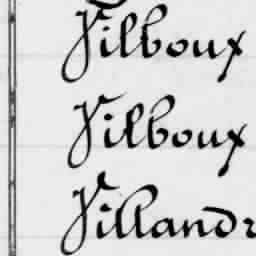 Vilboux
Vilboux
Villandr